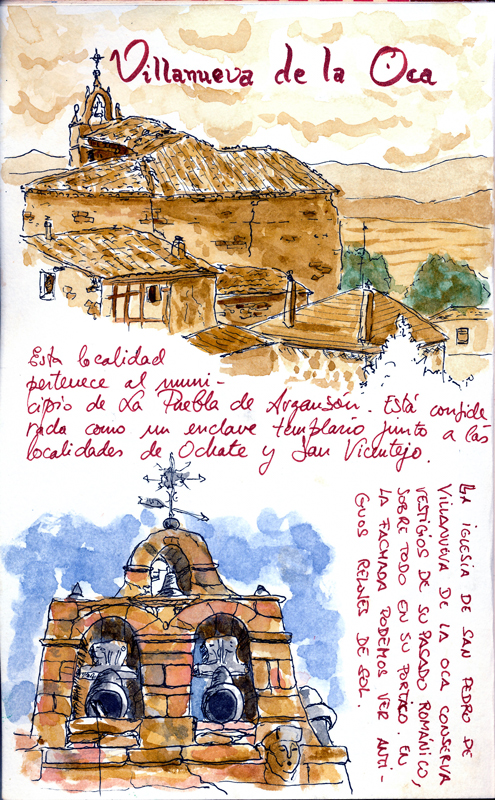 Villanueva de la Oca
Esta localidad
pertenece al muni-
cipio de La Puebla de Arganzón. Está conside
rada como un enclave templario junto a las
localidades de Ochate y San Vicentejo.
LA IGLESIA DE SAN PEDRO DE
VILLANUEVA DE LA OCA CONSERVA
VESTIGIOS DE SU PASADO ROMÁNICO,
SOBRE TODO EN SU PORTICO. EN
LA FACHADA PODEMOS VER ANTI-
GUOS RELOJES DE SOL.